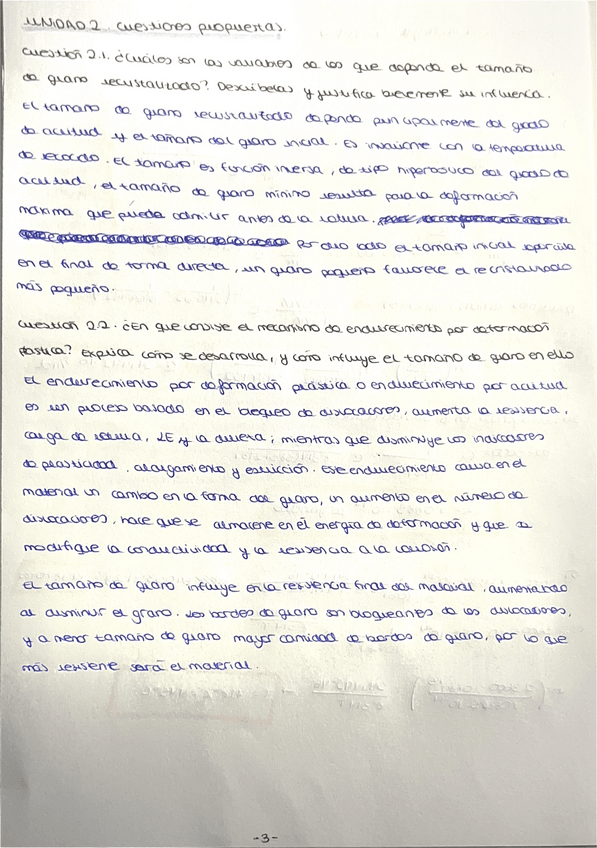 UNIDAD 2. cuestiones propuestas.
cuestión 2.1. ¿Cuáles son las variables de las que depende el tamaño
de grano recristalizado? Descríbelas y justifica brevemente su influencia.
El tamaño de grano recristalizado depende principalmente del grado
de acritud y el tamaño del grano inicial. Es invariante con la temperatura
de recocido. El tamaño es función inversa, de tipo hiperbólico del grado de
acritud, el tamaño de grano mínimo resulta para la deformación
máxima que pueda admitir antes de la rotura.
Por otro lado el tamaño inicial
en el final de forma directa, un grano pequeño favorece el recristalizado
más pequeño.
cuestión 2.2. ¿En que consiste el mecanismo de endurecimiento por deformación
plástica? Explica cómo se desarrolla, y cómo influye el tamaño de grano en ello
El endurecimiento por deformación plástica o endurecimiento por acritud
es un proceso basado en el bloqueo de dislocaciones, aumenta la resistencia,
carga de rotura, LE, y la dureza; mientras que disminuye los indicadores
de plasticidad, alargamiento y estricción. Este endurecimiento causa en el
material un cambio en la forma del grano, un aumento en el número de
dislocaciones, hace que se almacene en él energía de deformación y que se
modifique la conductividad y la resistencia a la corrosión.
El tamaño de grano influye en la resistencia final del material, aumentando
al disminuir el grano. Los bordes de grano son bloqueantes de las dislocaciones,
y a menor tamaño de grano mayor cantidad de bordes de grano, por lo que
más resistente será el material.
-3-